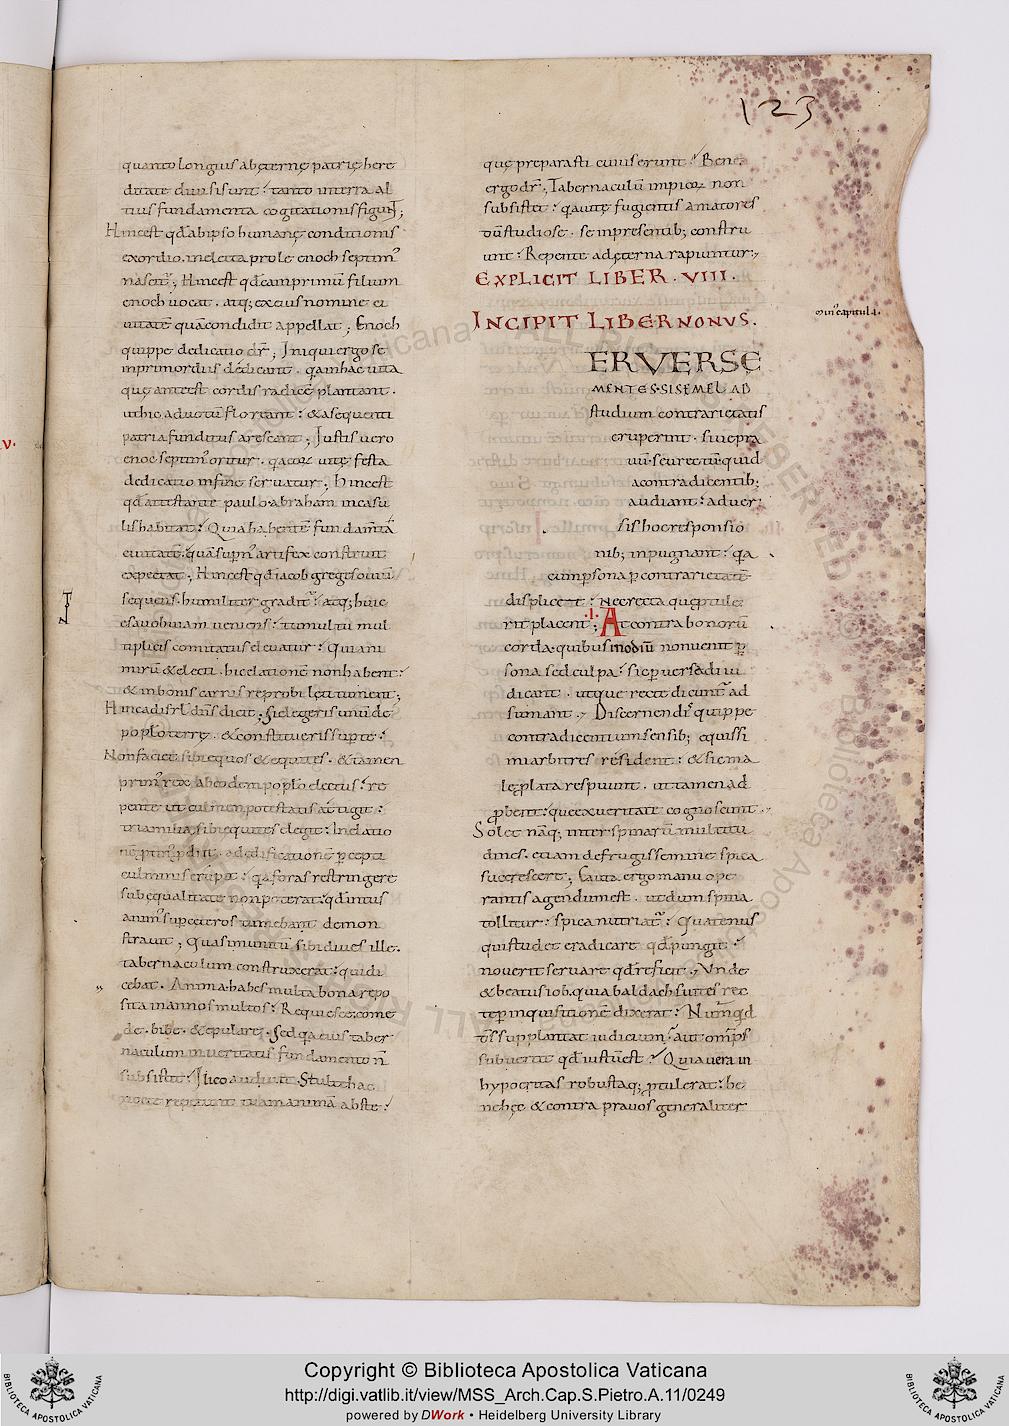 123
quanto longius ab ęternę patrię here
ditate diuisi sunt: tanto in terra al
tius fundamenta cogitationis figunt;
Hinc est qđ ab ipso humanę conditionis
exordio. in electa prole enoch septim'
nascit̃; Hinc est qđ cain primũ filium
enoch uocat. atq; ex eius nomine ci
uitatẽ quã condidit appellat; Enoch
quippe dedicatio dr̃; Iniqui ergo se
in primordiis dedicant. qa in hac uita
quę ante est cordis radicẽ plantant.
ut hic ad uotũ floreant: & a sequenti
patria funditus arescant; Iustis uero
enoc septim' oritur. qa eoꝝ uitę festa
dedicatio in fine seruatur; Hinc est
qđ attestante paulo abraham in casu
lis habitat: Quia habentẽ fundam̃ta
ciuitatẽ. quã supn' artifex construit
expectat; Hinc est qđ iacob greges ouiũ
sequens. humiliter gradit̃: atq; huic
esau obuiam ueniens: tumultu mul
tiplicis comitatus eleuatur: Quia ni
mirũ & electi. hic elationẽ non habent:
& in bonis carnis reprobi lęti tument;
Hinc ad isrl̃ dñs dicit; Si elegeris unũ de
poplo terrę. & constitueris sup te:
Non faciet sibi equos & equites. & tamen
prim' rex ab eodem poplo electus: re
pente ut culmen potestatis attigit:
tria milia sibi equites elegit: In elatio
nẽ ptin' pdiit. ędificationẽ pcepti
culminis erupit: qa foras restringere
sub equalitate non poterat: qđ intus
anim' sup ceteros tumebat; demon
strauit; Quasi munitũ sibi diues ille.
tabernaculum construxerat: qui di
cebat. Anima. habes multa bona repo
sita in annos multos: Requiesce. come
de. bibe. & epulare; Sed qa eius taber
naculum in ueritatis fundamento ñ
subsistit: Ilico audiuit. Stulte hac
nocte repetunt tuam animã abs te:
quę preparasti cuius erunt: Bene
ergo dr̃; Tabernaculũ impioꝝ non
subsistet: qa uitę fugientis amatores
dũ studiose. se in presentib; constru
unt: Repente ad ęterna rapiuntur;
EXPLICIT LIBER . VIII .
INCIPIT LIBER NONUS.
ERVERSĘ
MENTES. SI SEMEL AD
studium contrarietatis
eruperint. siue pra
uũ. seu rectũ quid
a contradicentib;
audiant: aduer
sis hoc responsio
nib; inpugnant: qa
cum psona p contrarietatẽ
displicet: nec recta quę ptule
.I.
rit placent; At contra bonorũ
corda. quibus in odiũ non uenit p
sona sed culpa: sic peruersa diiu
dicant. ut que recte dicunt̃ ad
sumant; Discernendi quippe
contradicentium sensib; equissi
mi arbitres resident: & sic ma
lę plata respuunt. ut tamen ad
probent: quę ex ueritate cognoscunt.
Solet nãq; inter spinarũ multitu
dines. etiam de frugis semine spica
succrescere; Cauta ergo manu ope
rantis agendum est. ut dum spina
tollitur: spica nutriat̃: Quatenus
qui studet eradicare qđ pungit:
nouerit seruare qđ reficit; Unde
& beatus iob. quia baldach suites rec
te p inquisitionẽ dixerat: Nũmqd
ds̃ supplantat iudicium: aut omps
subuertit qđ iustũ est: Quia uera in
hypocritas robustaq; ptulerat: be
ne hęc & contra prauos generaliter